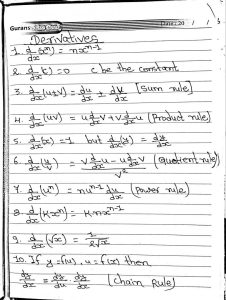 Gurans
Date: 20 / /
Derivatives
1. d/dx (xⁿ) = nxⁿ⁻¹
2. d/dx (c) = 0 c be the constant
3. d/dx (u±v) = du/dx ± dv/dx [Sum rule]
4. d/dx (uv) = u d/dx v + v d/dx u (Product rule)
5. d/dx (x) = 1 but d/dx (y) = dy/dx
6. d/dx (u/v) = (v d/dx u - u d/dx v)/v² (Quotient rule)
7. d/dx (uⁿ) = nuⁿ⁻¹ du/dx (Power rule)
8. d/dx (kxⁿ) = k.nxⁿ⁻¹
9. d/dx (√x) = 1/2√x
10. If y = f(u), u = f(x) then
dy/dx = dy/du . du/dx (Chain Rule)